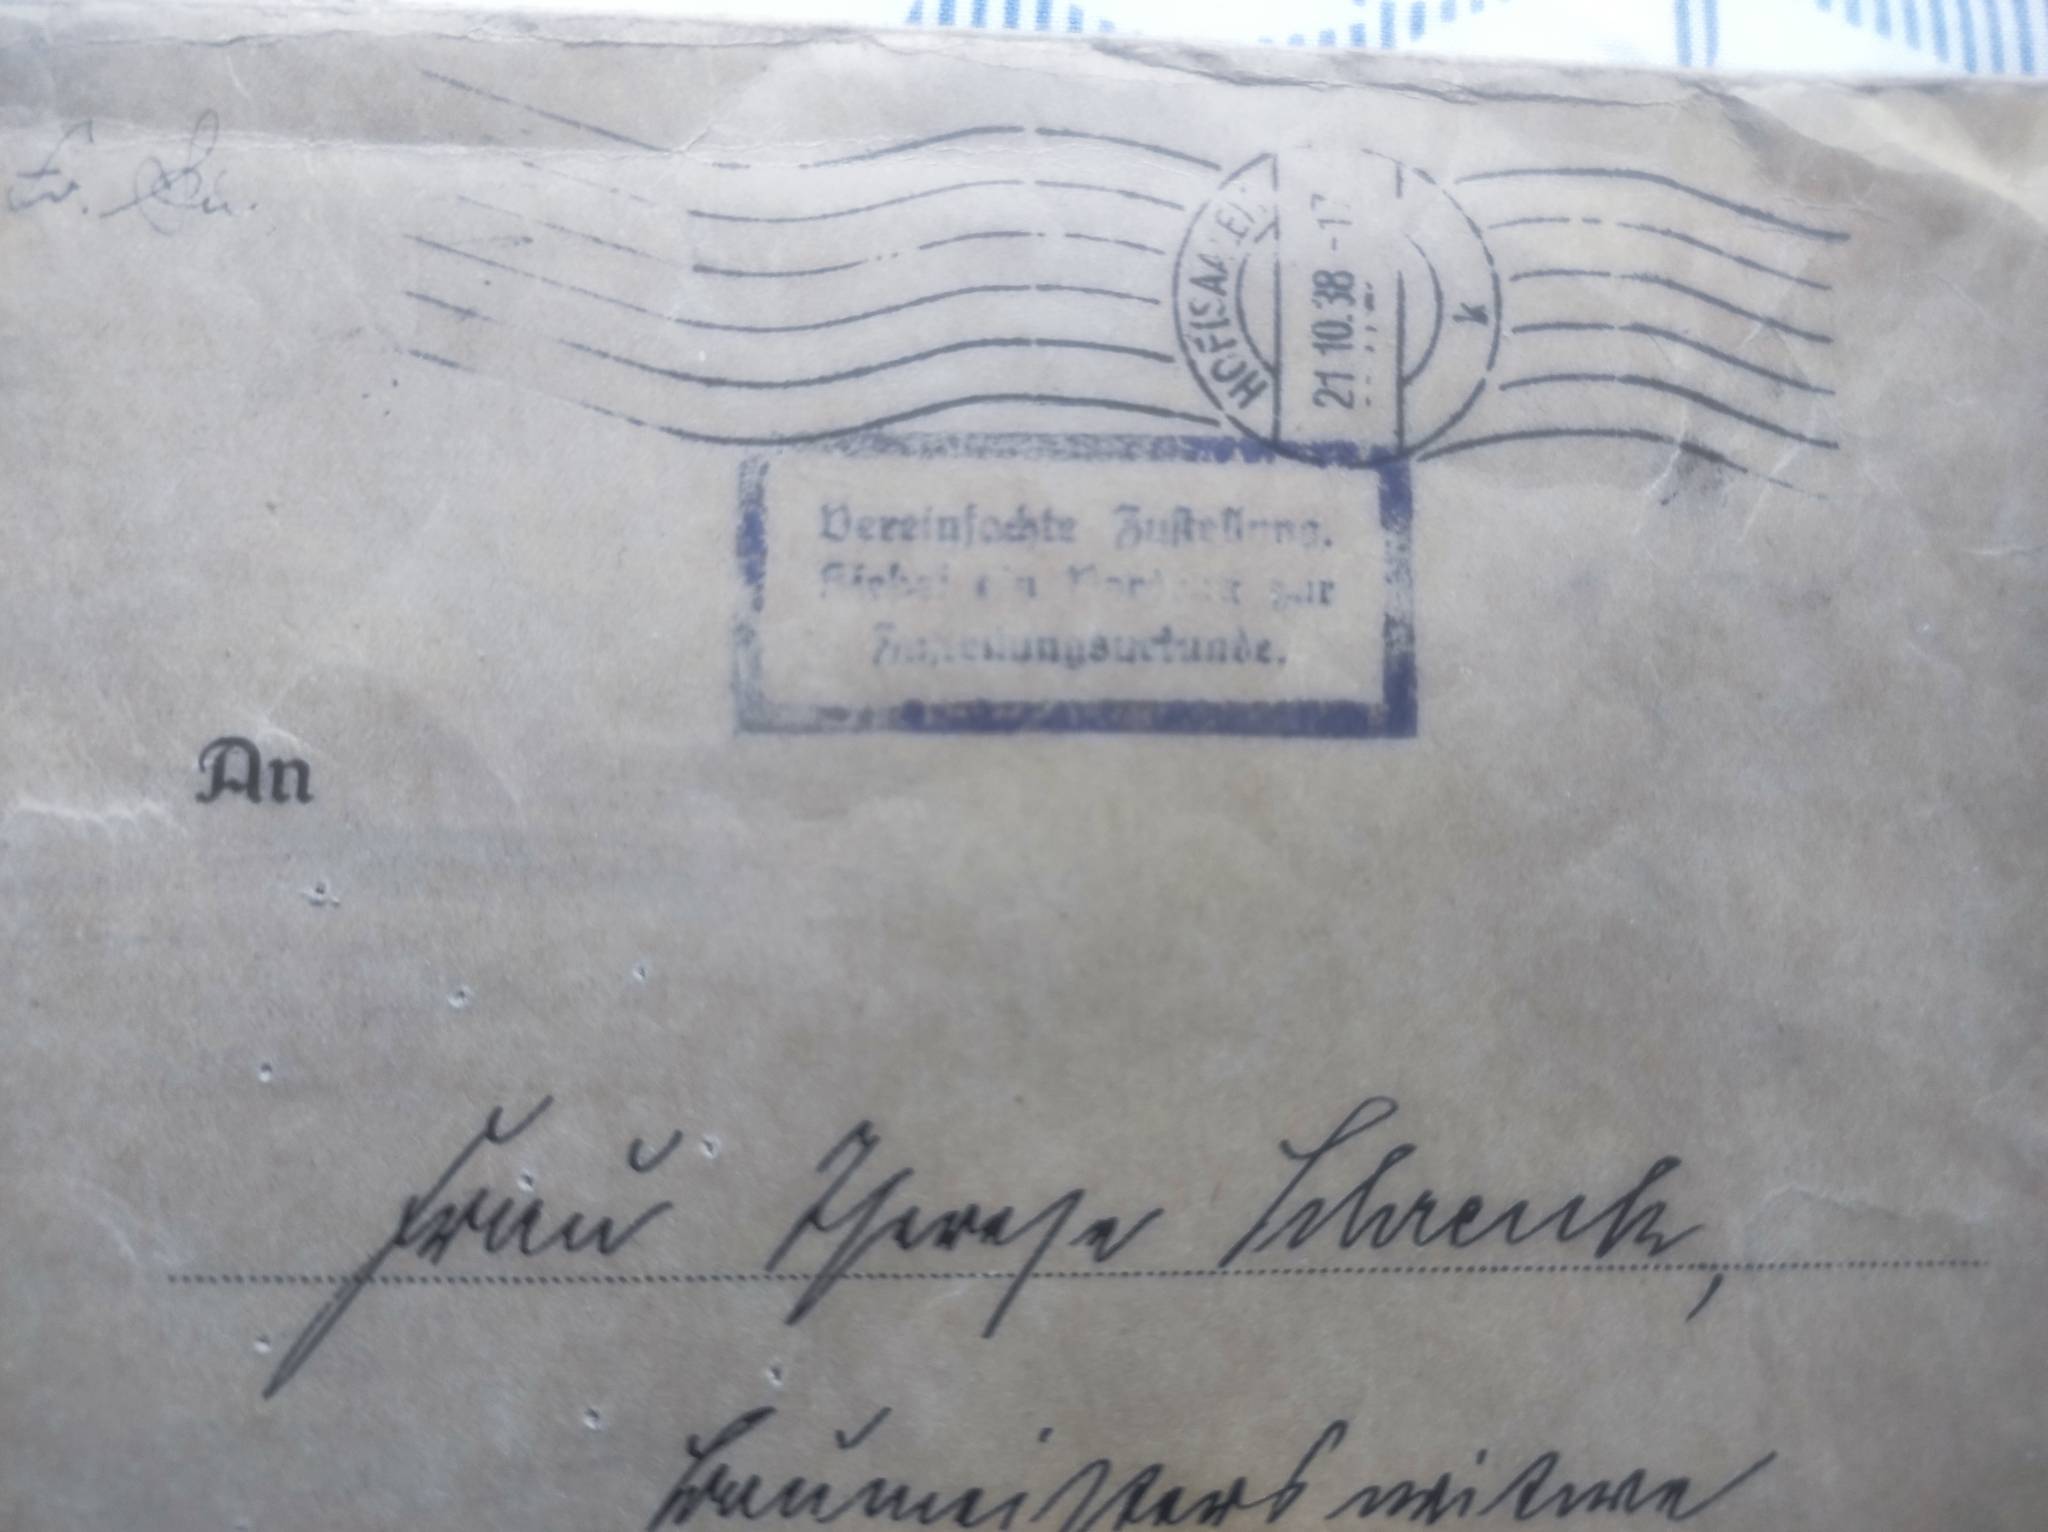 HOF (SAALE)
21.10.38-17
k
Vereinfachte Zustellung.
Hierbei ein Vordruck zur
Zustellungsurkunde.
An
Frau Therese Schrenk,
Baumeisterswitwe